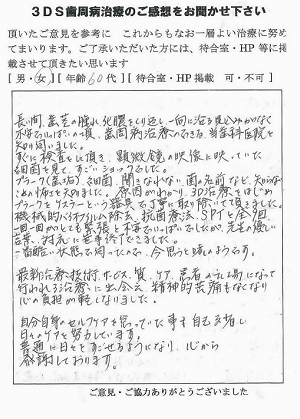 3DS歯周病治療のご感想をお聞かせ下さい
頂いたご意見を参考に これからもなお一層よい治療に努め
てまいります。ご了承いただいた方には、待合室・HP等に掲
載させて頂きたい思います
[男・女][年齢60代][待合室・HP掲載 可・不可]
長い間、歯茎の腫れ、出膿をくり返し一向に治る見込みがなく
不安でいっぱいの頃、歯周病治療のできる、当歯科医院を
知り伺いました。
すぐに検査をして頂き、顕微鏡の映像に映っていた
細菌を見て、すごいショックでした。
プラーク(歯垢)、細菌、聞きなれない菌の名前など、知らない
この怖さを知りました。原因がわかり、3DS治療をはじめ
プラークをスケラーという器具で丁寧に取り除いて頂きました。
機械的バイオフィルム除去、抗菌療法、SPTと全9回
一回一回がとても緊張と不安でいっぱいでしたが、先生の優しい
言葉、対応に無事終了できました。
一番酷い状態で伺ったので、今思うと嘘のようです。
最新治療技術、サービス、質、ケア、患者の立場になって
行われる治療に出会え、精神的苦痛もなくなり
心の負担が軽くなりました。
自分自身のセルフケアを怠っていた事を自己反省し
日々のケアを努力しています。
普通に日々をすごせるようになり、心から
感謝しております。
ご意見・ご協力ありがとうございました